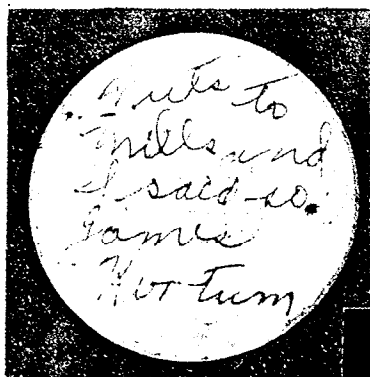 Nuts to
Mills and
I said so.
James
Kortum